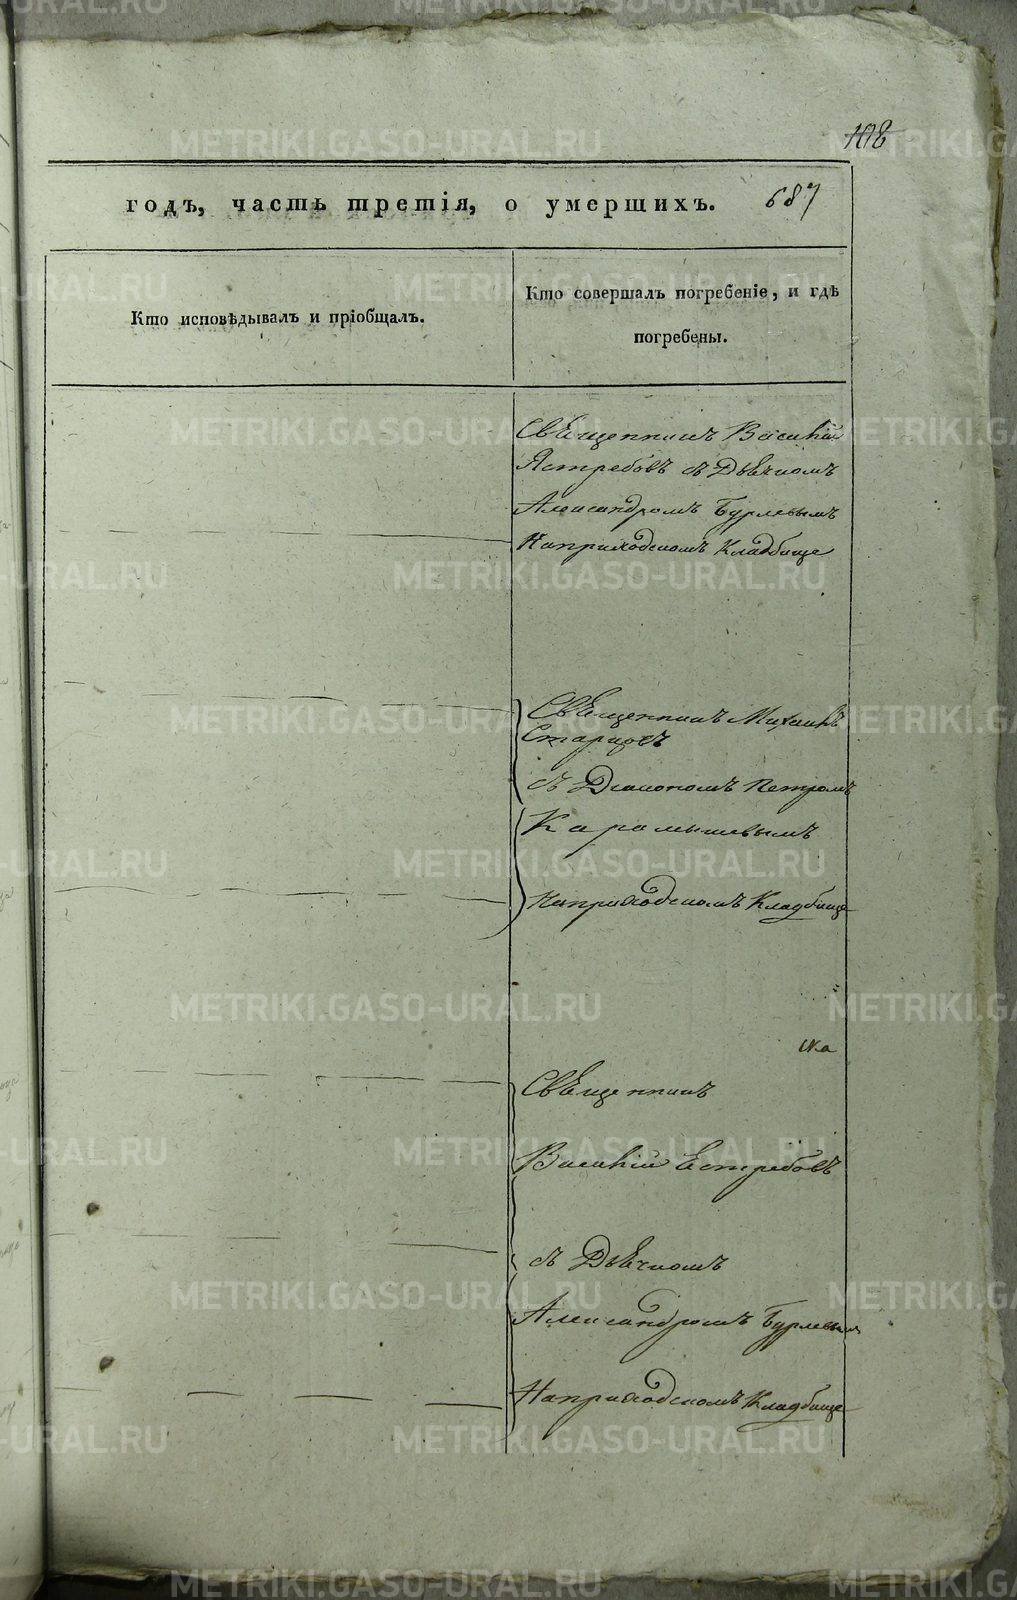 108
годъ, часть третія, о умерщихъ. 687
Кто исповѣдывалъ и пріобщалъ.
Кто совершалъ погребеніе, и гдѣ
погребены.
Священникъ Василій
Ястребовъ съ Дьячкомъ
Александромъ Бурлевымъ
На приходскомъ Кладбище
Священникъ Михаилъ
Старцовъ
съ Діакономъ Петромъ
Карамышевымъ
На приходскомъ Кладбище
Священникъ
Василій Естребовъ
съ Дьячкомъ
Александромъ Бурлевым
На приходскомъ Кладбище
METRIKI.GASO-URAL.RU